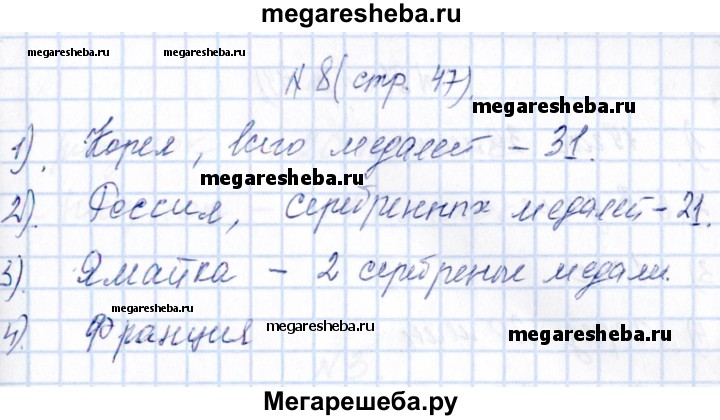 megaresheba.ru
megaresheba.ru megaresheba.ru
N 8 (стр. 47).
megaresheba.ru
1). Корея, всего медалей – 31.
megaresheba.ru
2). Россия, серебренных медалей – 21.
3). Ямайка – 2 серебреные медали.
megaresheba.ru
4). Франция
megaresheba.ru
megaresheba.ru
Мегарешеба.ру